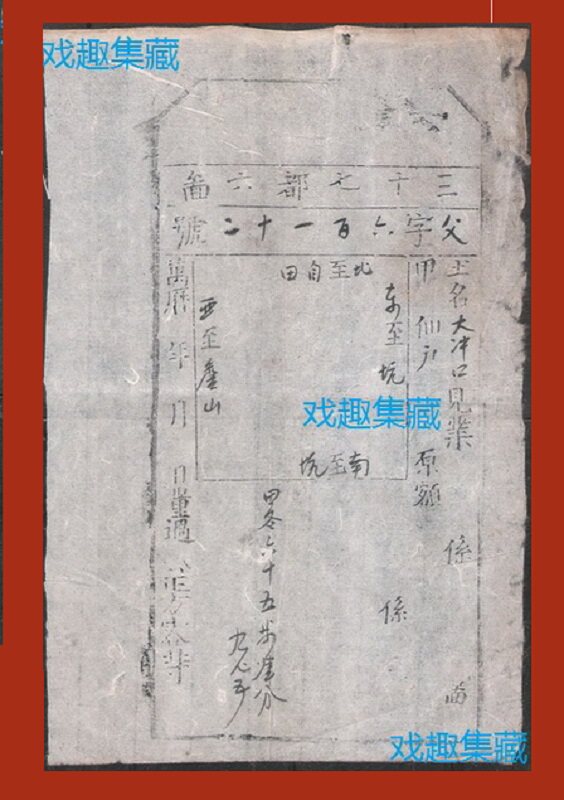 戏趣集藏
三十七都六啚
父字六百一十二號
土名大冲口見業 係 啚
甲 佃户 原額 係
北至自田
东至坑
南至坑
西至 山
田 六十五步 分
萬曆 年 月 日量過
戏趣集藏
戏趣集藏